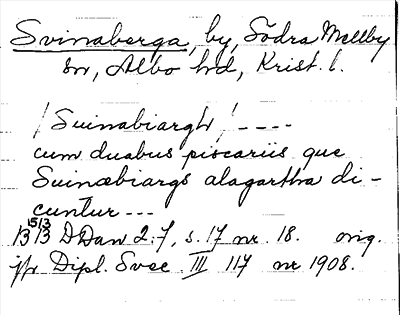 Svinaberga, by, Södra Mellby
sn, Albo hd, Krist. l.
/Suinabiargh/ ----
cum duabus piscariis que
Suinæbiargs alagartha di-
cuntur ---
15/3 1313 DDan 2:7, s. 17 nr 18. orig.
jfr Dipl. Svec. III 117 nr 1908.